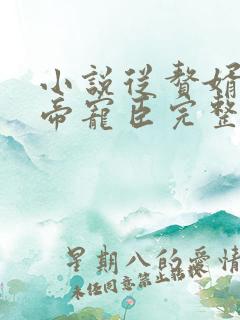 小說從贅婿
帝寵臣完整
星期八的愛情
未任同意禁止转投